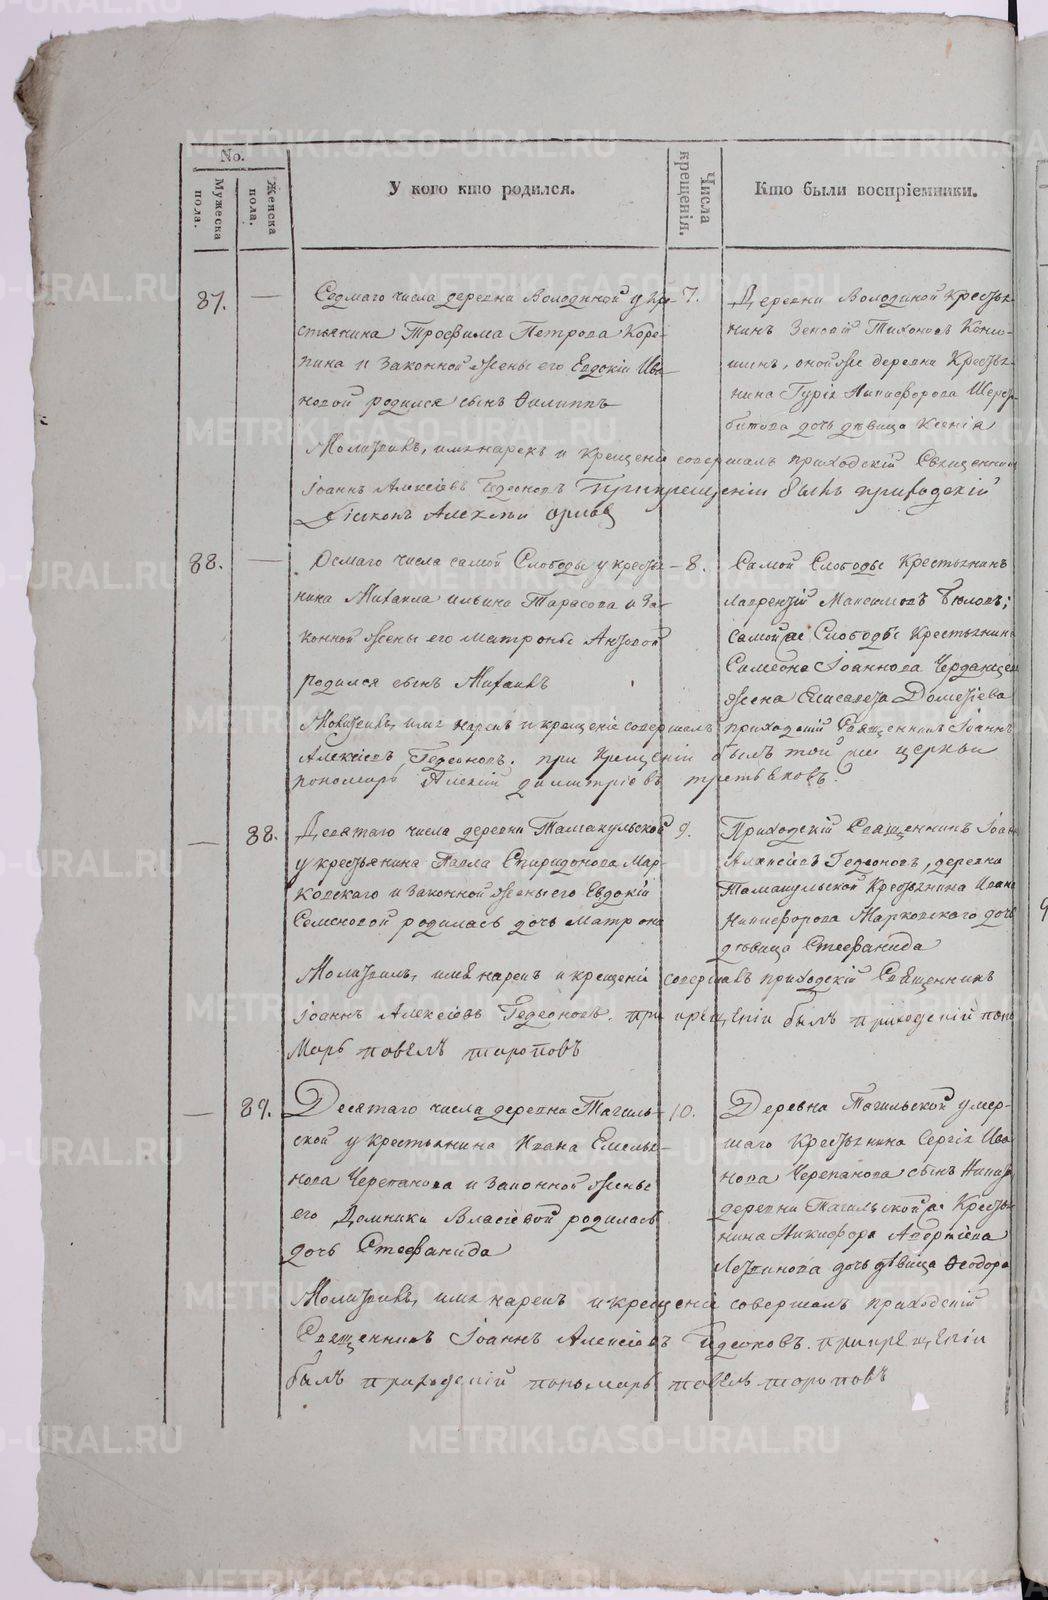 No.
Мужеска пола.
Женска пола.
У кого кто родился.
Числа крещенія.
Кто были воспріемники.
87. —
Седмаго числа деревни Володиной у кре-
стьянина Трофима Петрова Коре-
пина и законной жены его Евдокіи Ива-
новой родился сынъ Филиппъ
7.
Деревни Володиной крестья-
нинъ Зеновій Тихоновъ
шинъ, оной же деревни Крестья-
нина Гурія Никифорова
битова дочь дѣвица Ксенія
Молитвилъ, имя нарекъ и крещеніе совершалъ приходскій Священникъ
Іоаннъ Алексіевъ Гедеоновъ При крещеніи былъ приходскій
Діаконъ Алексѣй Орловъ
88. —
Осмаго числа самой Слободы у крестья-
нина Михаила Ильина Тарасова и за-
конной жены его Матроны
родился сынъ Михаилъ
8.
Самой Слободы Крестьянинъ
Лаврентій Максимовъ Бѣловъ;
самой же Слободы Крестьянина
Симеона Іоаннова
жена Елисавета Дометіева
Молитвилъ, имя нарекъ и крещеніе совершалъ приходскій Священникъ Іоаннъ
Алексіевъ Гедеоновъ. при крещеніи былъ той же церкви
пономарь Алексій Димитріевъ третьяковъ.
— 88.
Девятаго числа деревни Тамакульской
у крестьянина Павла Спиридонова Мар-
ковскаго и законной жены его Евдокіи
Семеновой родилась дочь Матрона
9.
Приходскій Священникъ Іоаннъ
Алексіевъ Гедеоновъ, деревни
Тамакульской Крестьянина Ивана
Никифорова Марковскаго дочь
дѣвица Стефанида
Молитвилъ, имя нарекъ и крещеніе совершалъ приходскій Священникъ
Іоаннъ Алексіевъ Гедеоновъ. при крещеніи былъ приходскій поно
марь павелъ торо­повъ
— 89.
Десятаго числа деревни Тагиль-
ской у крестьянина Ивана Емелья-
нова Черепанова и законной жены
его Домники Власіевой родилась
дочь Стефанида
10.
Деревни Тагильской умер-
шаго Крестьянина Сергія Ива
нова Черепанова сынъ
деревни Тагильской же Крестья-
нина Никифора Аверкіева
дочь дѣвица Ѳеодора
Молитвилъ, имя нарекъ и крещеніе совершалъ приходскій
Священникъ Іоаннъ Алексіевъ Гедеоновъ. при крещеніи
былъ приходскій пономарь павелъ тороповъ